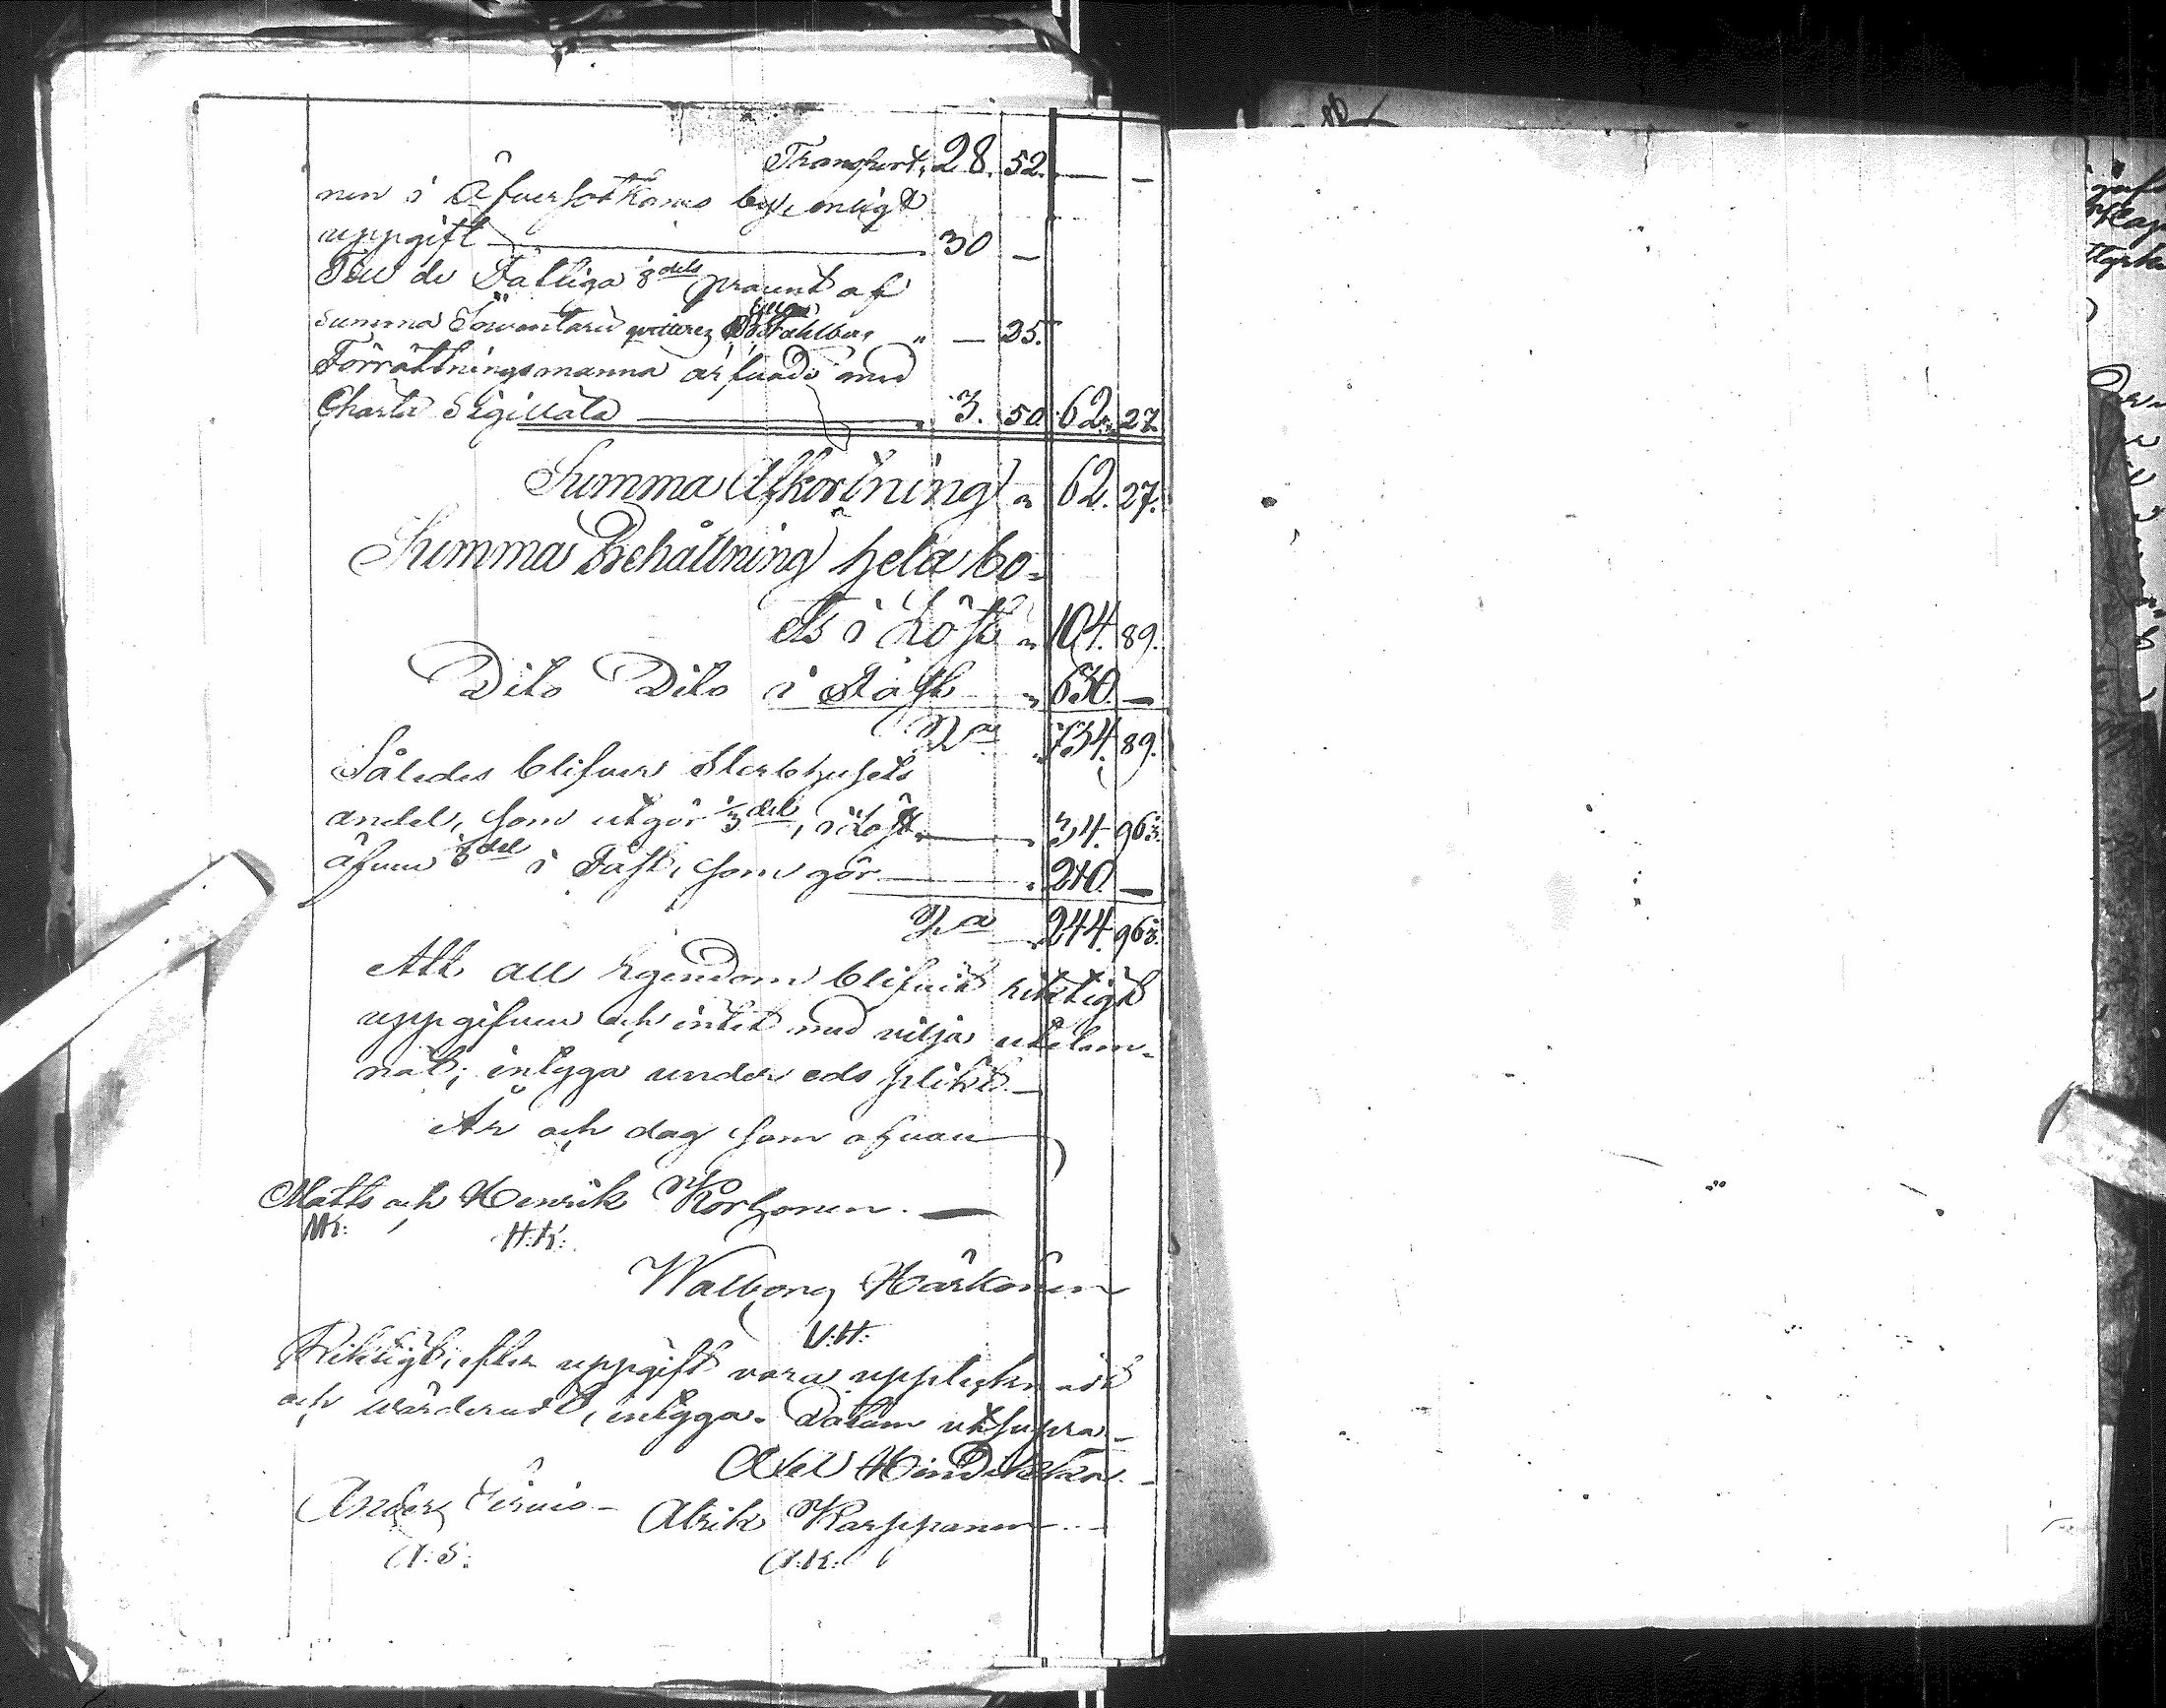 Transport, 28. 52. — —
nen i Öfversotkamo by, enligt
uppgift — 30 —
Till de Fattiga 8dels procent af
Summa Inventarii
Ståhlberg " — 25.
Förrättningsmanna arfvode med
Charta Sigillata — 3. 50 62. 27.
Summa Afkortning " 62. 27.
Summa Behållning hela bo-
ets i Löst " 104. 89.
Dito Dito i Fast " 630. —
Sa 734. 89.
Således blifver Sterbhusets
andel, som utgör 1/3 del, i Löst — 34. 96
äfven 3 del i Fast, som gör — 210. —
Sa 244. 96
Att all Egendom blifvit riktigt
uppgifven och intet med vilja utelem-
nat; intyga under eds plikt. —
År och dag som ofvan
Matts och Henrik Korhonen. —
M:K: H:K:
Walborg Härkönen
V:H:
Riktigt, efter uppgift vara upptecknadt
och wärderadt, intyga. Datum utsupra. —
Axel
Anders — Alrik Karppanen —
A:S: A:K: